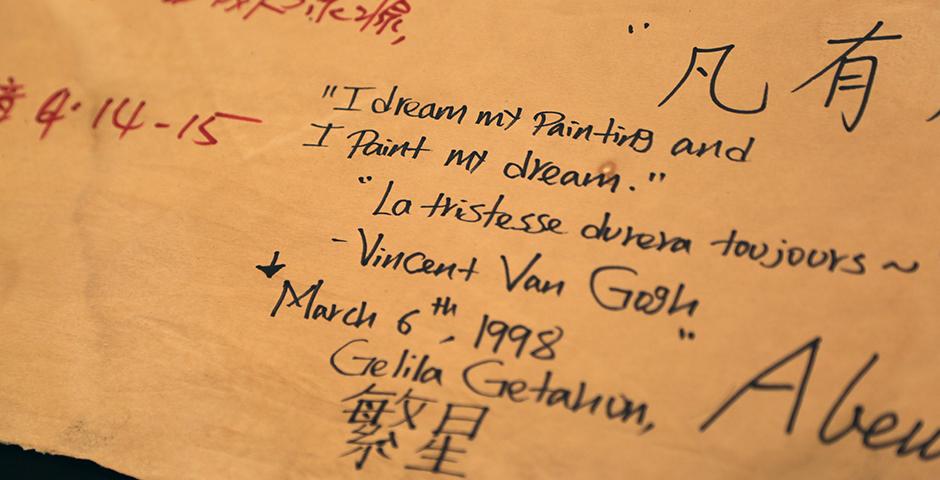 4:14-15
"凡有
"I dream my Painting and
I Paint my dream."
"La tristesse durera toujours ~
- Vincent Van Gogh
March 6th, 1998"
Gelila Getahun,
繁星